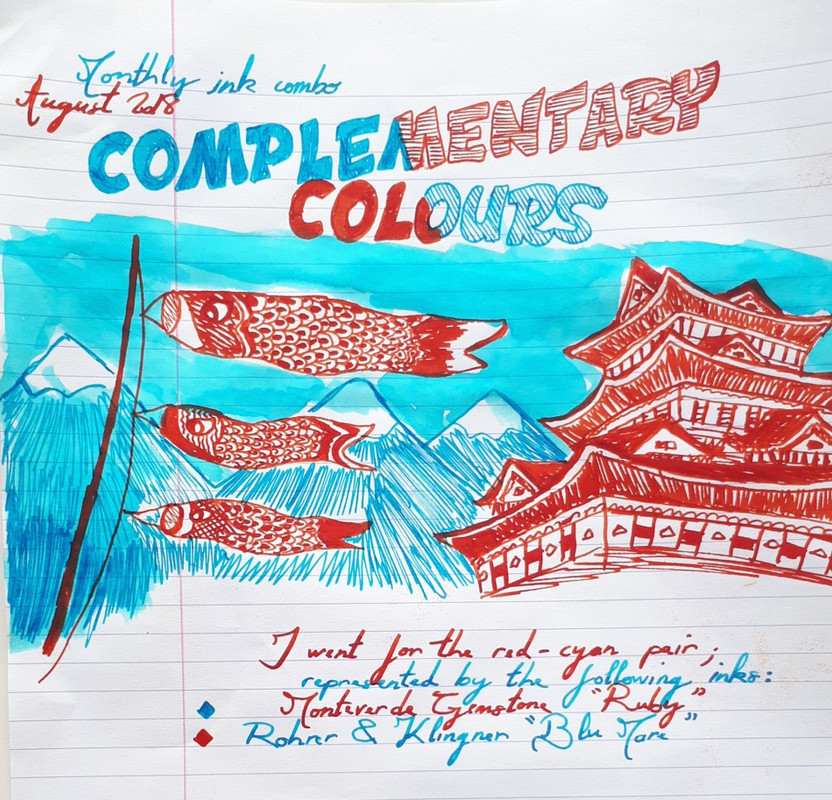 Monthly ink combo
August 2018
COMPLEMENTARY
COLOURS
I went for the red-cyan pair;
represented by the following inks:
Monteverde Gemstone "Ruby"
Rohrer & Klingner "Blu Mare"